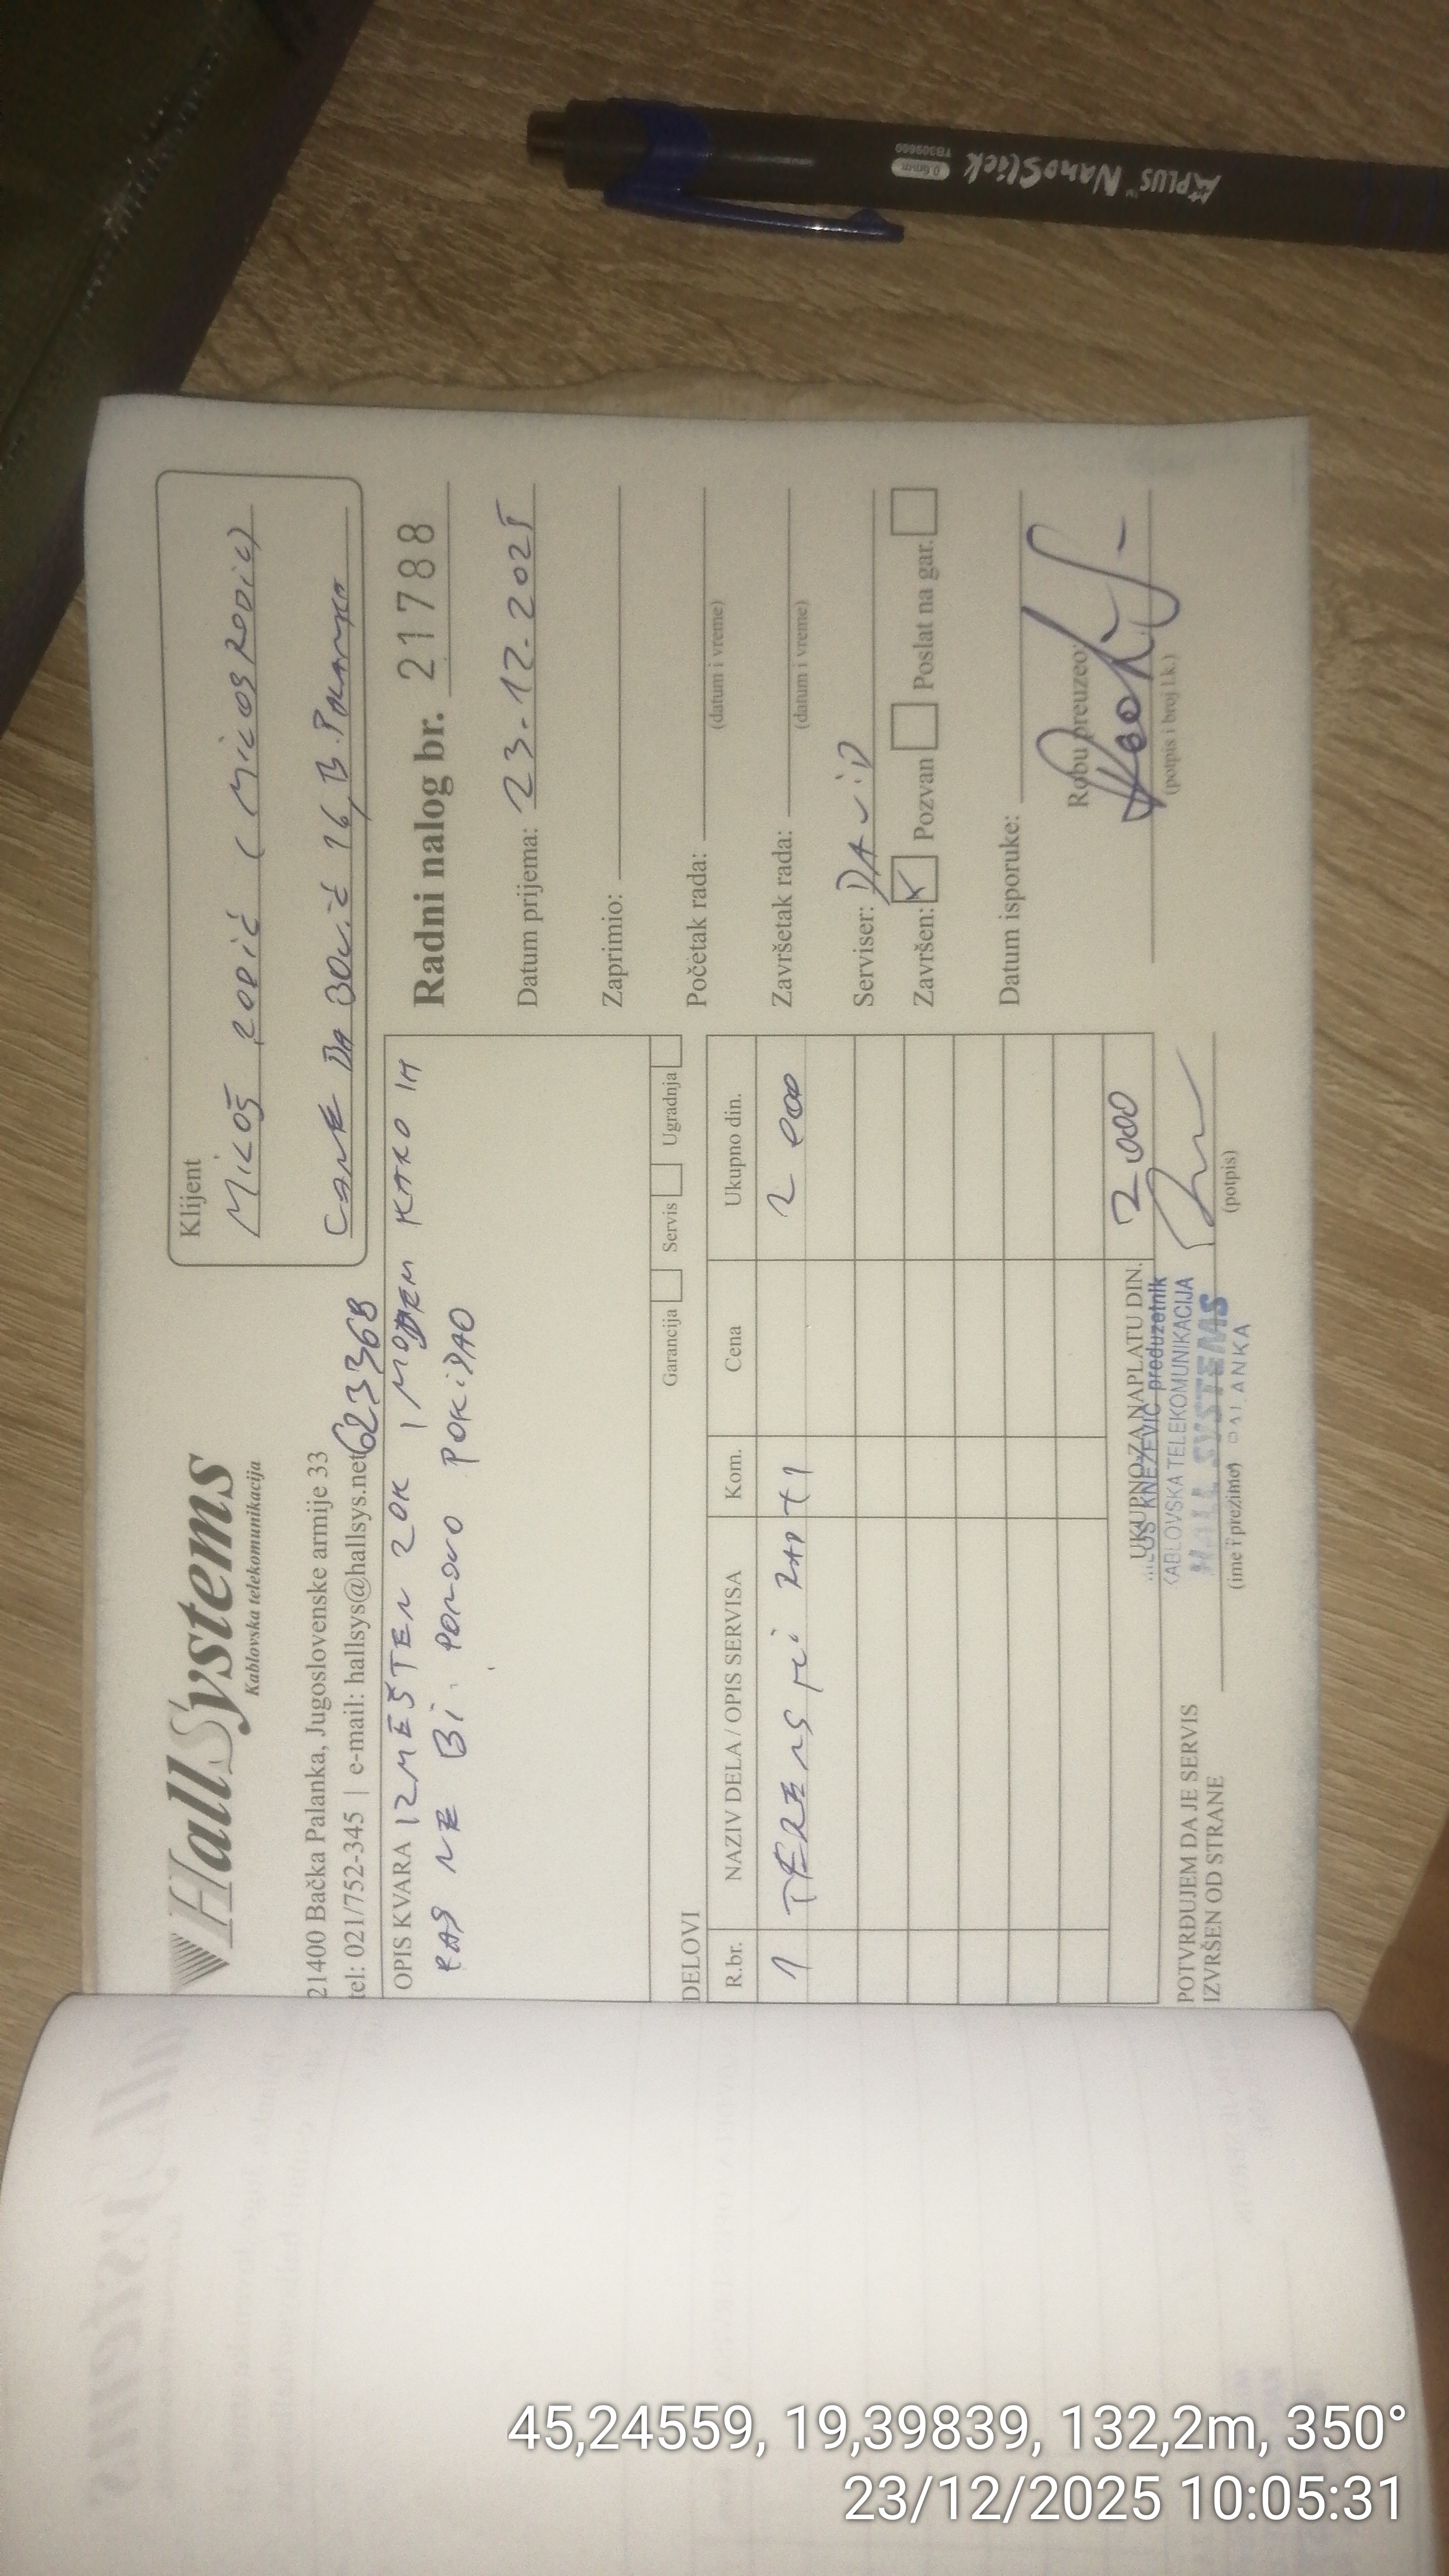 HallSystems
Kablovska telekomunikacija
21400 Bačka Palanka, Jugoslovenske armije 33
tel: 021/752-345 | e-mail: hallsys@hallsys.net
623368
Klijent
MILOŠ RODIĆ (MILOŠRODIC)
16, B. PALANKA
Radni nalog br. 21788
OPIS KVARA IZMEŠTEN ZOK I MODEM KAKO IH
PAS NE BI PONOVO POKIDAO
Garancija Servis Ugradnja
Datum prijema: 23.12.2025
Zaprimio:
Početak rada:
(datum i vreme)
Završetak rada:
(datum i vreme)
Serviser: DAViD
Završen: X Pozvan Poslat na gar.
Datum isporuke:
Robu preuzeo:
(potpis i broj l.k.)
DELOVI
R.br. NAZIV DELA / OPIS SERVISA Kom. Cena Ukupno din.
1 TERENSKI RAD +1 2 000
UKUPNO ZA NAPLATU DIN. 2.000
POTVRĐUJEM DA JE SERVIS
IZVRŠEN OD STRANE
(ime i prezime) (potpis)
KNEŽEVIĆ preduzetnik
KABLOVSKA TELEKOMUNIKACIJA
HALL SYSTEMS
PALANKA
APLUS NanoSlick
0.6mm
TB309600
45,24559, 19,39839, 132,2m, 350°
23/12/2025 10:05:31